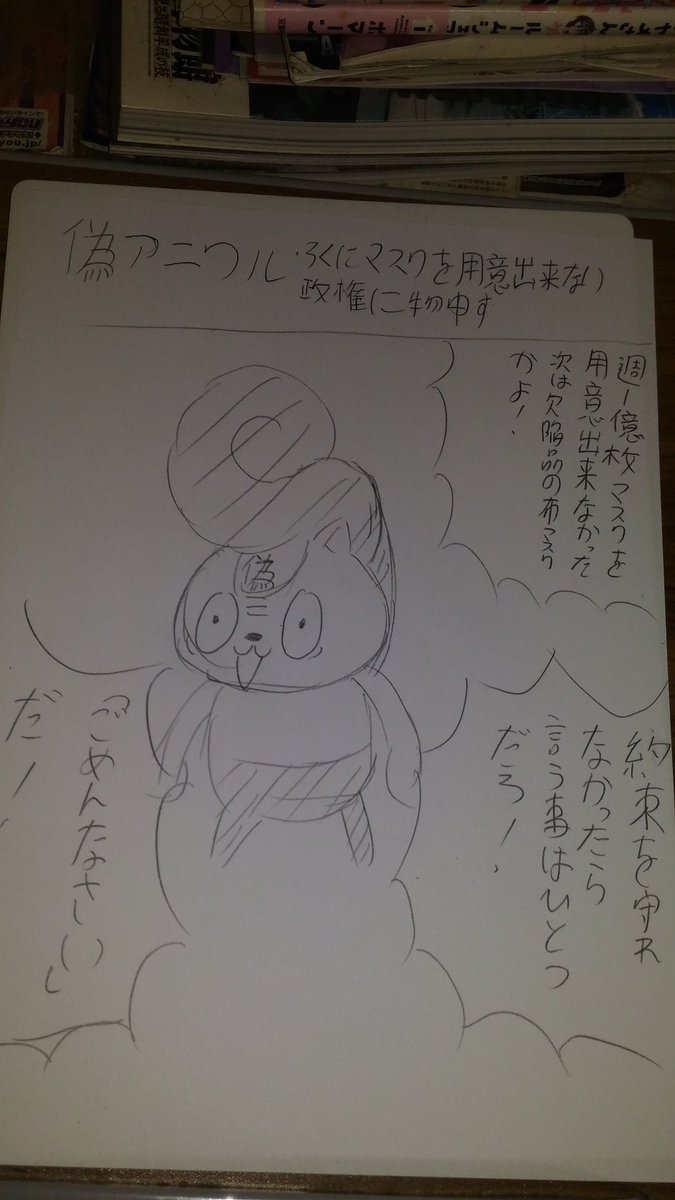 偽アニワル・ろくにマスクを用意出来ない
政権に物申す
週1億枚マスクを
用意出来なかった
次は欠陥品の布マスク
かよ!
偽
約束を守れ
なかったら
言う事はひとつ
だろ!
「ごめんなさい」
だ!
you.jp/